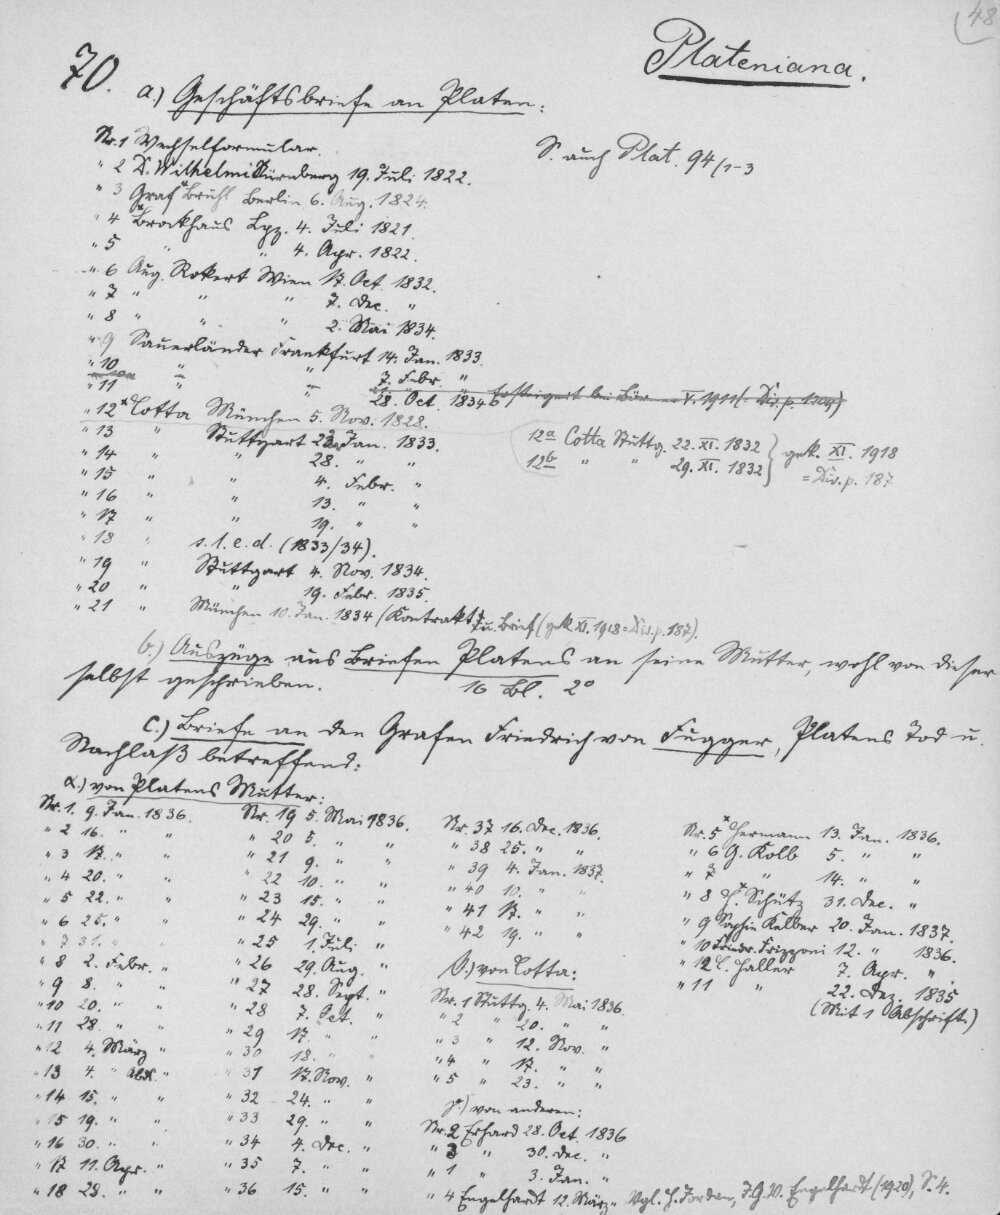 48
Plateniana.
70.
a.) Geschäftsbriefe an Platen:
S. auch Plat. 94/1-3
Nr. 1 Wechselformular.
" 2 D. Wilhelmi Nürnberg 19. Juli 1822.
" 3 Graf Brühl Berlin 6. Aug. 1824.
" 4 Brockhaus Lpz. 4. Juli 1821.
" 5 " " 4. Apr. 1822.
" 6 Aug. Rokert Wien 17. Oct. 1832.
" 7 " " 7. Dec. "
" 8 " " 2. Mai 1834.
" 9 Sauerländer Frankfurt 14. Jan. 1833.
" 10 " " 7. Febr. "
" 11 " " 28. Oct. 1834
" 12 Cotta München 5. Nov. 1828.
" 13 " Stuttgart 23. Jan. 1833.
12a Cotta Stuttg. 22. XI. 1832 } gek. XI. 1918
12b " " 29. XI. 1832 } = Div. p. 187
" 14 " " 28. " "
" 15 " " 4. Febr. "
" 16 " " 13. " "
" 17 " " 19. " "
" 18 " s. l. e. d. (1833/34).
" 19 " Stuttgart 4. Nov. 1834.
" 20 " " 19. Febr. 1835.
" 21 " München 10. Jan. 1834 (Kontrakt) u. Brief (gek. XI. 1918 = Div. p. 187).
b.) Auszüge aus Briefen Platens an seine Mutter, wohl von dieser
selbst geschrieben. 16 Bl. 2°
c.) Briefe an den Grafen Friedrich von Fugger, Platens Tod u.
Nachlaß betreffend:
α.) von Platens Mutter:
Nr. 1. 9. Jan. 1836.
" 2 16. " "
" 3 17. " "
" 4 20. " "
" 5 22. " "
" 6 25. " "
" 7 31. " "
" 8 2. Febr. "
" 9 8. " "
" 10 20. " "
" 11 28. " "
" 12 4. März "
" 13 4. " abds. "
" 14 15. " "
" 15 19. " "
" 16 30. " "
" 17 11. Apr. "
" 18 28. " "
Nr. 19 5. Mai 1836.
" 20 5. " "
" 21 9. " "
" 22 10. " "
" 23 15. " "
" 24 29. " "
" 25 1. Juli "
" 26 29. Aug. "
" 27 28. Sept. "
" 28 7. Oct. "
" 29 17. " "
" 30 18. " "
" 31 17. Nov. "
" 32 24. " "
" 33 29. " "
" 34 4. Dec. "
" 35 7. " "
" 36 15. " "
Nr. 37 16. Dec. 1836.
" 38 25. " "
" 39 4. Jan. 1837.
" 40 10. " "
" 41 17. " "
" 42 19. " "
β.) von Cotta:
Nr. 1 Stuttg. 4. Mai 1836.
" 2 " 20. " "
" 3 " 12. Nov. "
" 4 " 17. " "
" 5 " 23. " "
γ.) von anderen:
Nr. 2 Erhard 28. Oct. 1836
" 3 " 30. Dec. "
" 1 " 3. Jan. "
" 4 Engelhardt 12. März " Vgl. H. Jordan, J. G. V. Engelhardt (1920), S. 4.
Nr. 5 Hermann 13. Jan. 1836.
" 6 G. Kolb 5. " "
" 7 " 14. " "
" 8 H. Schütz 31. Dec. "
" 9 Sophie Kelber 20. Jan. 1837.
" 10 Friedr. Frizzoni 12. " 1836.
" 12 C. Haller 7. Apr. "
" 11 " 22. Dez. 1835
(Mit 1 Abschrift.)